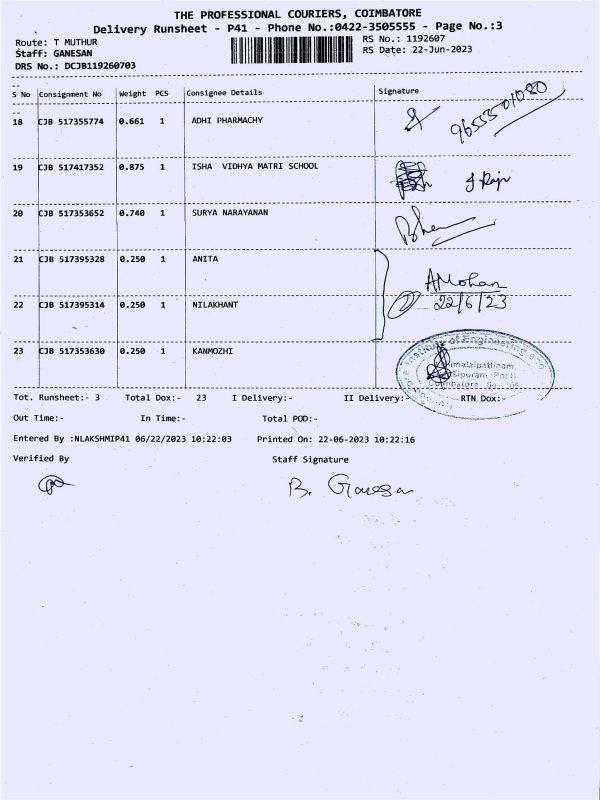 THE PROFESSIONAL COURIERS, COIMBATORE
Delivery Runsheet - P41 - Phone No.:0422-3505555 - Page No.:3
Route: T MUTHUR
RS No.: 1192607
Staff: GANESAN
RS Date: 22-Jun-2023
DRS No.: DCJB119260703
S No Consignment No Weight PCS Consignee Details Signature
18 CJB 517355774 0.661 1 ADHI PHARMACHY
96555 01080
19 CJB 517417352 0.875 1 ISHA VIDHYA MATRI SCHOOL
20 CJB 517353652 0.740 1 SURYA NARAYANAN
21 CJB 517395328 0.250 1 ANITA
AMohan
22 CJB 517395314 0.250 1 NILAKHANT 22/6/23
23 CJB 517353630 0.250 1 KANMOZHI
Institute of Engineering and
Coimbatore
Tot. Runsheet:- 3 Total Dox:- 23 I Delivery:- II Delivery:- RTN Dox:-
Out Time:- In Time:- Total POD:-
Entered By :NLAKSHMIP41 06/22/2023 10:22:03 Printed On: 22-06-2023 10:22:16
Verified By Staff Signature
B. Ganesan